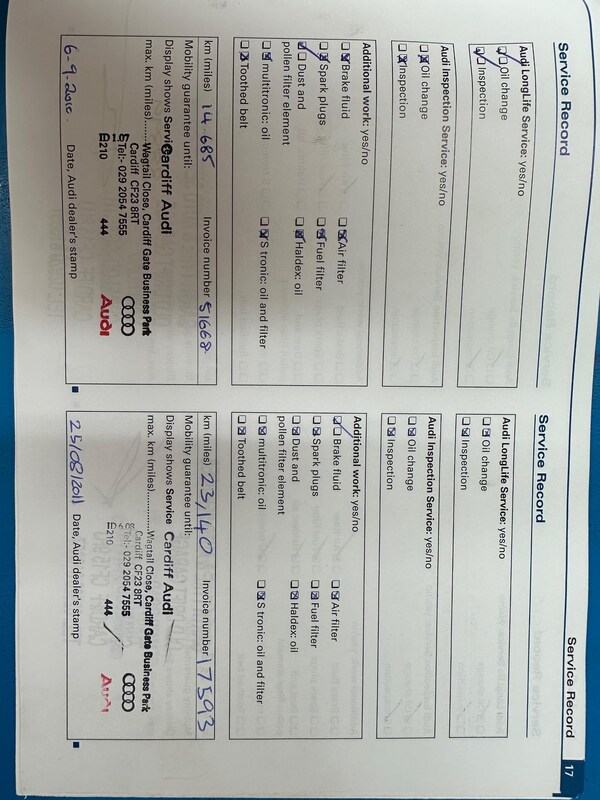 Service Record
17
Service Record
Audi LongLife Service: yes/no
Oil change
Inspection
Audi Inspection Service: yes/no
Oil change
Inspection
Additional work: yes/no
Brake fluid
Air filter
Spark plugs
Fuel filter
Dust and
pollen filter element
Haldex: oil
multitronic: oil
S tronic: oil and filter
Toothed belt
km (miles) 14 685 Invoice number 51668
Mobility guarantee until:
Display shows Service Cardiff Audi
max. km (miles)....... Wagtail Close, Cardiff Gate Business Park
Cardiff CF23 8RT
Tel:- 029 2054 7555
210 444
Audi
6-9-2010 Date, Audi dealer's stamp
Service Record
Audi LongLife Service: yes/no
Oil change
Inspection
Audi Inspection Service: yes/no
Oil change
Inspection
Additional work: yes/no
Brake fluid
Air filter
Spark plugs
Fuel filter
Dust and
pollen filter element
Haldex: oil
multitronic: oil
S tronic: oil and filter
Toothed belt
km (miles) 23,140 Invoice number 17593
Mobility guarantee until:
Display shows Service Cardiff Audi
max. km (miles)............... Wagtail Close, Cardiff Gate Business Park
Cardiff CF23 8RT
Tel:- 029 2054 7555
210 444
Audi
25/08/2011 Date, Audi dealer's stamp